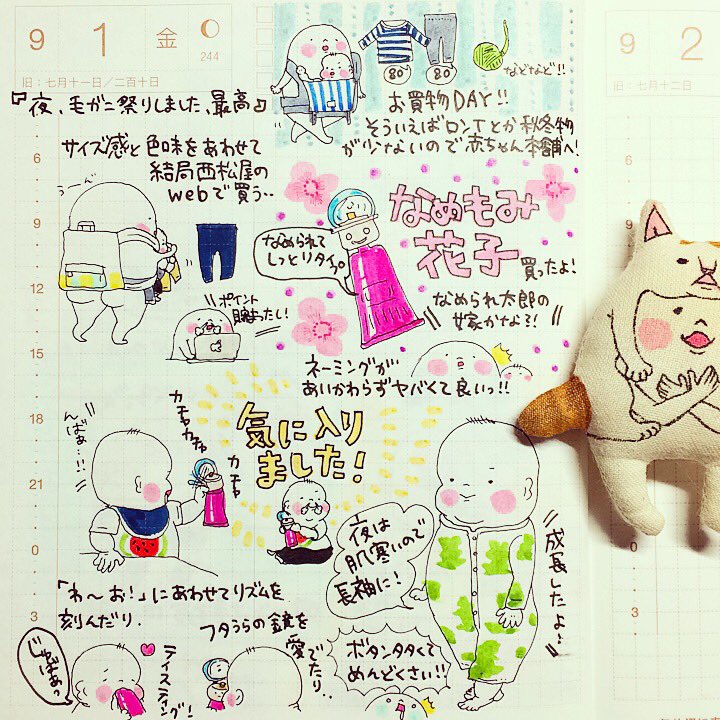 9 1 金 244
旧:七月十一日/二百十日
『夜、毛ガニ祭りしました、最高』
サイズ感と色味をあわせて
結局西松屋の
webで買う..
うーん
ポイント
貯まったい!
80 80
などなど!!
お買物DAY!!
そういえばロンTとか秋冬物
が少ないので赤ちゃん本舗へ!
なめもみ
花子
買ったよ!
なめられて
しっとりタイプ
なめられ太郎の
嫁かなよ?!
ネーミングが
あいかわらずヤバくて良いっ!!
6
9
12
15
18
21
0
3
んばぁ…!!
カチャカチャ
カチャ
気に入り
ました!
夜は
肌寒いので
長袖に!
成長したよ…
「わ〜お!」にあわせてリズムを
刻んだり.
フタうらの鏡を
愛でたり..
テイスティング!
ボタンタタくて
めんどくさい!!
9 2
旧:七月十二日
6
9
12
0
3